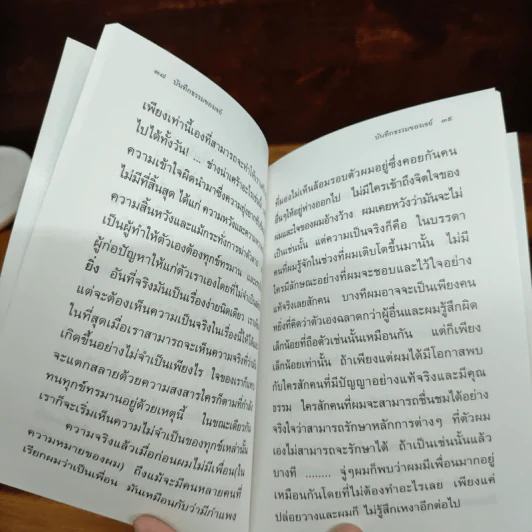 ๓๘ บันทึกธรรมของเจย์
เพียงเท่านี้เองที่สามารถจะทำให้
ไปได้ทั้งวัน! ... ช่างน่าเคราะห์
ความเข้าใจผิดนำมาซึ่งความทุกข์
ไม่มีที่สิ้นสุด ได้แก่ ความหวังและความ
ความสิ้นหวังและแม้กระทั่งการฆ่าตัว
เป็นผู้ทำให้ตัวเองต้องทุกข์ทรมาน และ
ผู้ก่อปัญหาให้แก่ตัวเราเองโดยที่ไม่จำเป็น
ยิ่ง อันที่จริงมันเป็นเรื่องง่ายนิดเดียว เรา
แต่จะต้องเห็นความเป็นจริงในเรื่องนี้ให้ได้
ในที่สุดเมื่อเราสามารถจะเห็นความจริงที่ว่า
เกิดขึ้นอย่างไม่จำเป็นเพียงไร ใจของเราก็แทบ
จะแตกสลายด้วยความสงสารใครก็ตามที่กำลัง
ทนทุกข์ทรมานอยู่ด้วยเหตุนี้ ในขณะเดียวกัน
เราก็จะเริ่มเห็นความไม่จำเป็นของทุกข์เหล่านั้น
ความจริงแล้วเมื่อก่อนผมไม่มีเพื่อน(ใน
ความหมายของผม) ถึงแม้จะมีคนหลายคนที่
เรียกผมว่าเป็นเพื่อน มันเหมือนกับว่ามีกำแพง
บันทึกธรรมของเจย์ ๓๙
ที่มองไม่เห็นล้อมรอบตัวผมอยู่ซึ่งคอยกันคน
อื่นๆให้อยู่ห่างออกไป ไม่มีใครเข้าถึงจิตใจของ
ผมและใจของผมอ้างว้าง ผมเคยหวังว่ามันจะไม่
เป็นเช่นนั้น แต่ความเป็นจริงก็คือ ในบรรดา
คนที่ผมรู้จักในช่วงที่ผมเติบโตขึ้นมานั้น ไม่มี
ใครมีลักษณะอย่างที่ผมจะชอบและไว้ใจอย่าง
แท้จริงเลยสักคน บางทีผมอาจจะเป็นเพียงคน
หยิ่งที่คิดว่าตัวเองฉลาดกว่าผู้อื่นและผมรู้สึกผิด
เล็กน้อยที่ถือตัวเช่นนั้นเหมือนกัน แต่ก็เพียง
เล็กน้อยเท่านั้น ถ้าเพียงแต่ผมได้มีโอกาสพบ
กับใครสักคนที่มีปัญญาอย่างแท้จริงและมีคุณ
ธรรม ใครสักคนที่ผมจะสามารถชื่นชมได้อย่าง
จริงใจว่าสามารถรักษาหลักการต่างๆ ที่ตัวผม
เองไม่สามารถจะรักษาได้ ถ้าเป็นเช่นนั้นแล้ว
บางที ........ จู่ๆผมก็พบว่าผมมีเพื่อนมากอยู่
เหมือนกันโดยที่ไม่ต้องทำอะไรเลย เพียงแค่
ปล่อยวางและผมก็ ไม่รู้สึกเหงาอีกต่อไป